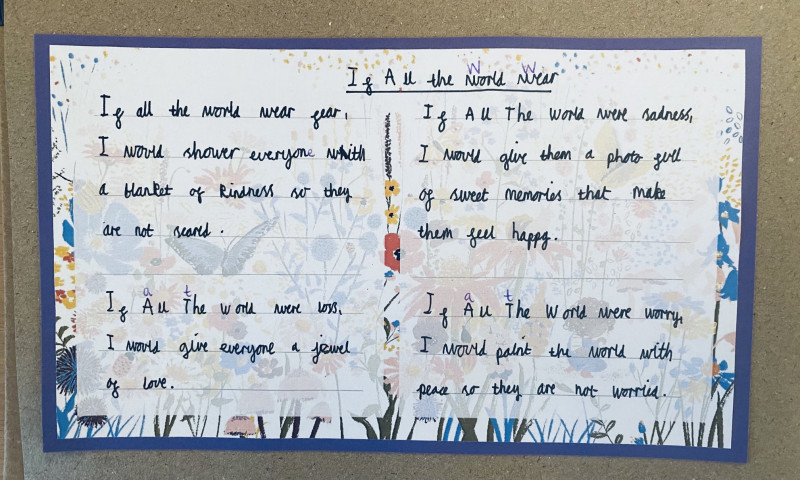 If All the world wear
If all the world wear fear,
I would shower everyone with
a blanket of kindness so they
are not scared.
If All The world were loss,
I would give everyone a jewel
of love.
If All The world were sadness,
I would give them a photo full
of sweet memories that make
them feel happy.
If All The world were worry,
I would paint the world with
peace so they are not worried.